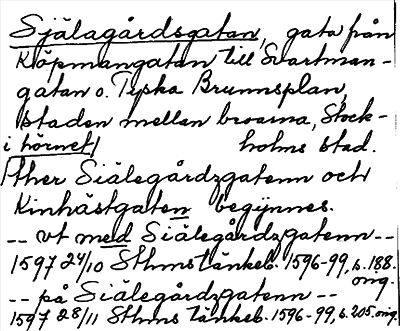 Själagårdsgatan, gata från
Köpmangatan till Svartman-
gatan o. Tyska Brunnsplan,
staden mellan broarna, Stock-
holms stad.
i hörnet
ther Siälegårdzgatenn och
Kinhästgaten begynnes.
-- vt med Siälegårdzgatenn --
1597 24/10 Sthms tänkeb. 1596-99, s. 188.
orig.
-- på Siälegårdzgatenn --
1597 28/11 Sthms tänkeb. 1596-99, s. 205. orig.